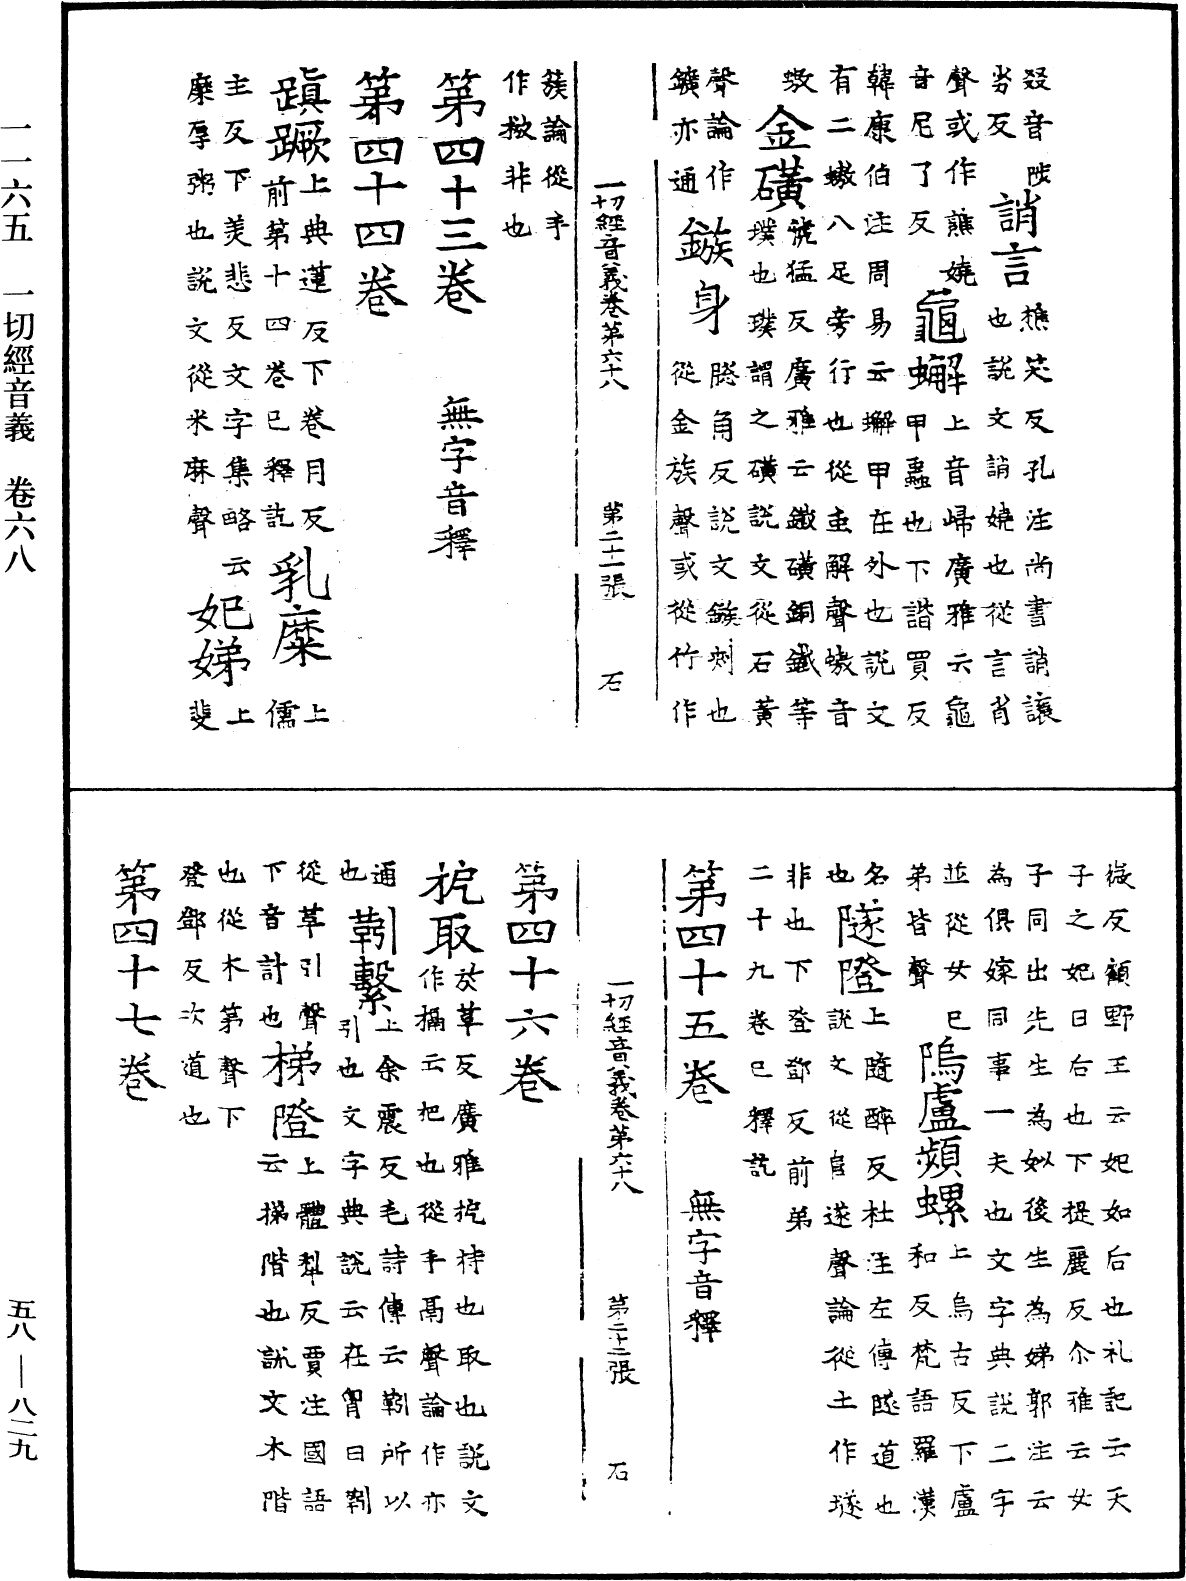 一一六五 一切經音義 卷六八
五八—八二九
㕞音陟
劣反 誚言 樵笑反孔注尚書誚讓
也說文誚嬈也從言肖
聲或作譙嬈
音尼了反 龜蠏 上音㱕廣雅云龜
甲蟲也下諧買反
韓康伯注周易云蠏甲在外也說文
有二螯八足旁行也從虫解聲螯音
敖 金礦 虢猛反廣雅云鐵礦銅鐵等
璞也璞謂之礦說文從石黃
聲論作
鑛亦通 鏃身 㥿角反說文鏃刺也
從金族聲或從竹作
一切經音義卷第六十八 第二十一張 石
簇論從手
作𢮁非也
第四十三卷 無字音釋
第四十四卷
蹎蹶 上典蓮反下卷月反
前第十四卷已釋訖 乳糜 上
儒
主反下美悲反文字集略云
糜厚粥也說文從米麻聲 妃娣 上
斐
微反顧野王云妃如后也礼記云天
子之妃曰后也下提麗反尒雅云女
子同出先生為姒後生為娣郭注云
為俱嫁同事一夫也文字典說二字
並從女巳
弟皆聲 隖盧頻螺 上烏古反下盧
和反梵語羅漢
名也 隧隥 上隨醉反杜注左傳隧道也
說文從𨸏遂聲論從土作墜
非也下登鄧反前弟
二十九卷已釋訖
第四十五卷 無字音釋
一切經音義卷第六十八 第二十二張 石
第四十六卷
挖取 於革反廣雅挖持也取也說文
作搹云把也從手鬲聲論作亦
通也 靷繫 上余震反毛詩傳云靷所以
引也文字典說云在胷曰靷
從革引聲
下音計也 梯隥 上體犁反賈注國語
云梯階也說文木階
也從木第聲下
登鄧反次道也
第四十七卷